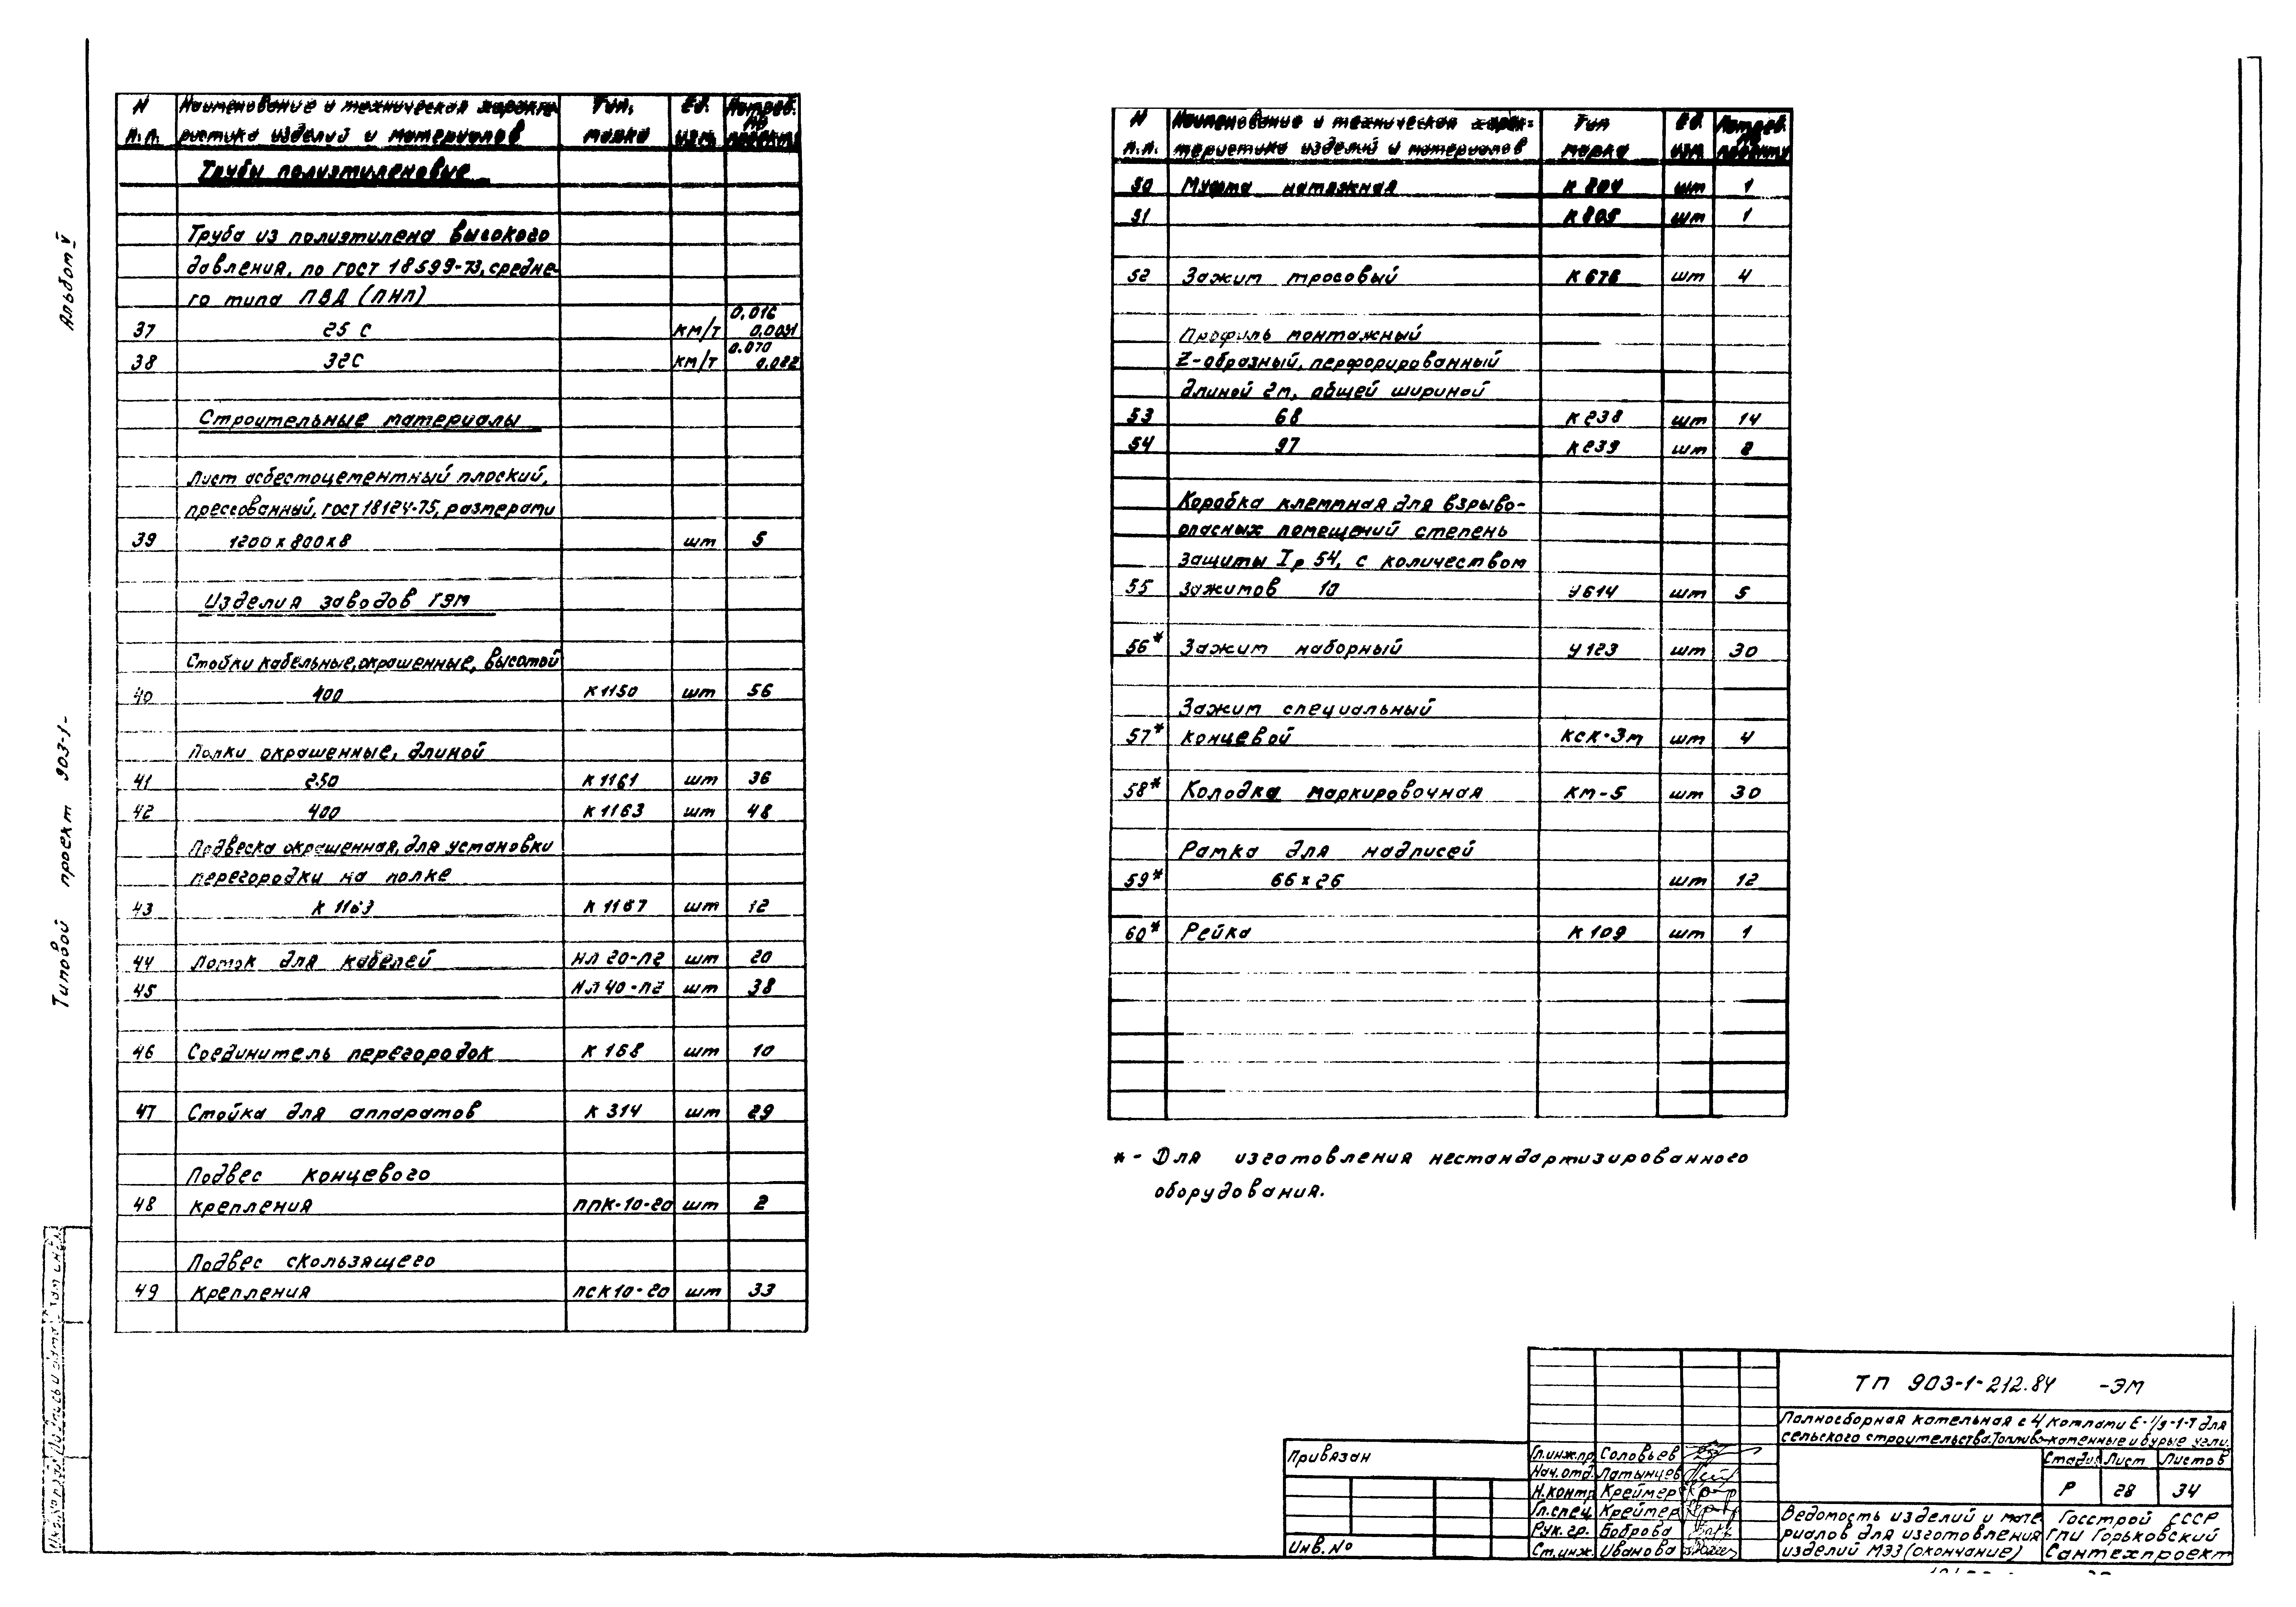 Альбом V
Типовой проект 903-1-
N п.п. | Наименование и техническая характе- | Тип, | Ед. | Потреб. по
ристика изделий и материалов | марка | изм. | проекту
Трубы полиэтиленовые
Труба из полиэтилена высокого
давления, по гост 18599-73, средне-
го типа ПВД (ПНП)
0,016
37 | 25 С | км/т | 0,0031
0.070
38 | 32С | км/т | 0,022
Строительные материалы
Лист асбестоцементный плоский,
прессованный, гост 18124-75, размерами
39 | 1200 х 800 х 8 | шт | 5
Изделия заводов ГЭМ
Стойки кабельные, окрашенные, высотой
40 | 400 | К 1150 | шт | 56
Полки окрашенные, длиной
41 | 250 | К 1161 | шт | 36
42 | 400 | К 1163 | шт | 48
Подвеска окрашенная, для установки
перегородки на полке
43 | К 1163 | К 1167 | шт | 12
44 | Лоток для кабелей | НЛ 20-П2 | шт | 20
45 | НЛ 40-П2 | шт | 38
46 | Соединитель перегородок | К 168 | шт | 10
47 | Стойка для аппаратов | К 314 | шт | 29
Подвес концевого
48 | крепления | ППК-10-20 | шт | 2
Подвес скользящего
49 | крепления | ПСК10-20 | шт | 33
N | Наименование и техническая харак- | Тип | Ед. | Потреб. по
п.п. | теристика изделий и материалов | марка | изм | проекту
50 | Муфта натяжная | К 804 | шт | 1
51 | К 805 | шт | 1
52 | Зажим тросовый | К 676 | шт | 4
Профиль монтажный
Z-образный, перфорированный
длиной 2м, общей шириной
53 | 68 | К 238 | шт | 14
54 | 97 | К 239 | шт | 2
Коробка клеммная для взрыво-
опасных помещений степень
защиты Iр 54, с количеством
55 | зажимов 10 | У 614 | шт | 5
56* | Зажим наборный | У 123 | шт | 30
Зажим специальный
57* | концевой | КСК-3м | шт | 4
58* | Колодка маркировочная | КМ-5 | шт | 30
Рамка для надписей
59* | 66 х 26 | шт | 12
60* | Рейка | К 109 | шт | 1
* - Для изготовления нестандартизированного
оборудования.
Привязан
Инв. №
Гл.инж.пр. Соловьев
Нач. отд. Латынцев
Н.контр Креймер
Гл.спец. Креймер
Рук. гр. Боброва
Ст.инж. Иванова
ТП 903-1-212.84 -ЭМ
Полносборная котельная с 4 котлами Е-1/9-1-Т для
сельского строительства. Топливо-каменные и бурые угли.
Стадия Лист Листов
Р 28 34
Ведомость изделий и мате
риалов для изготовления
изделий МЭЗ (окончание)
Госстрой СССР
ГПИ Горьковский
Сантехпроект